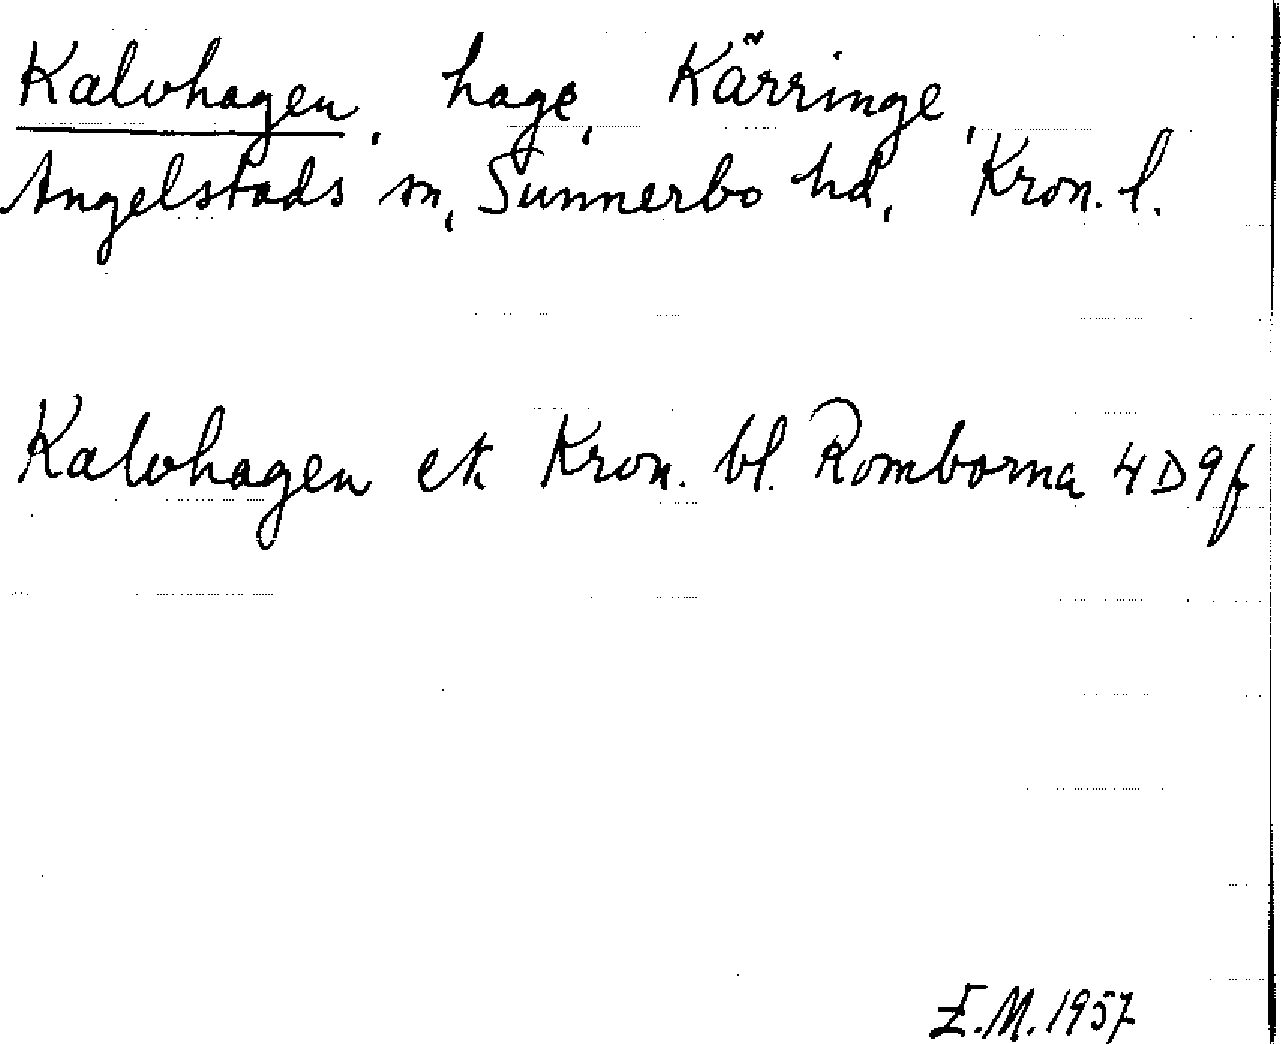 Kalvhagen, hage, Kärringe,
Angelstads sn, Sunnerbo hd, Kron. l.
Kalvhagen ek Kron. bl. Romborna 4D9f
E.M. 1957